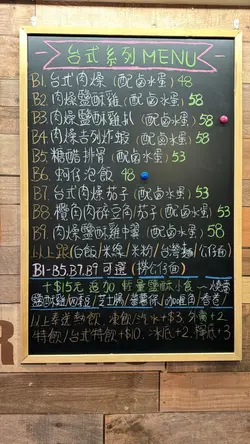 台式系列MENU
B1. 台式肉燥 (配鹵水蛋) 48
B2 肉燥鹽酥雞 (配鹵水蛋) 58
B3 肉燥鹽酥雞扒 (配鹵水蛋) 58
B4 肉燥吉列炸蝦 (配鹵水蛋) 58
B5 糖醋排骨 (配鹵水蛋) 53
B6 蚵仔泡飯 48
B7 台式肉燥茄子 (配鹵水蛋) 53
B8 欖角肉碎豆角茄子 (配鹵水蛋) 53
B9 肉燥鹽酥雞中翼 (配鹵水蛋) 58
以上跟(白飯/米線/米粉/台灣麵/公仔麵)
B1-B5.B7.B9 可選 (撈公仔麵)
+$15元 追加 輕量鹽酥小食~
鹽酥雞/芝士腸/薯條/咖喱角/春卷/
以上奉送熱飲. 凍飲/汽水+$3. 外賣+2
特飲/台式特飲+$10. 冰底+2. 降底+3